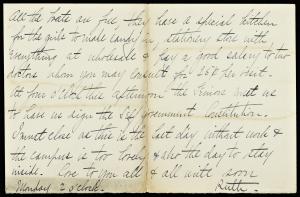 All the boats are free, they have a special kitchen
for the girls to make candy in, stationery store with
everything at wholesale & pay a good salary to two
doctors whom you may consult for 25¢ per visit.
At four o'clock this afternoon the Seniors meet us
to have us sign the Self government Constitution.
I must close as this is the last day without work &
the campus is too lovely & also the day to stay
inside. Love to you all & all write soon
Monday 2 o'clock. Ruth.